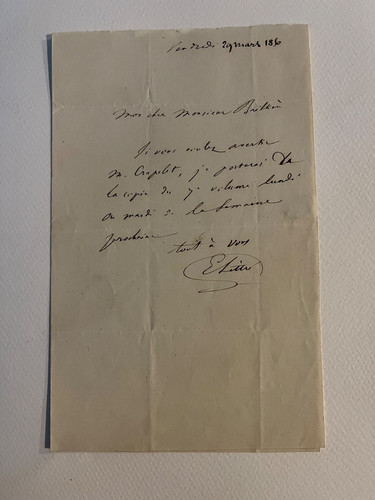 Vendredi 29 mars 186
Mon cher Monsieur
Si vous voulez avertir
M. Crapelet, je porterai
la copie du 7e volume lundi
ou mardi de la Semaine
prochaine
tout à vous
E Littré